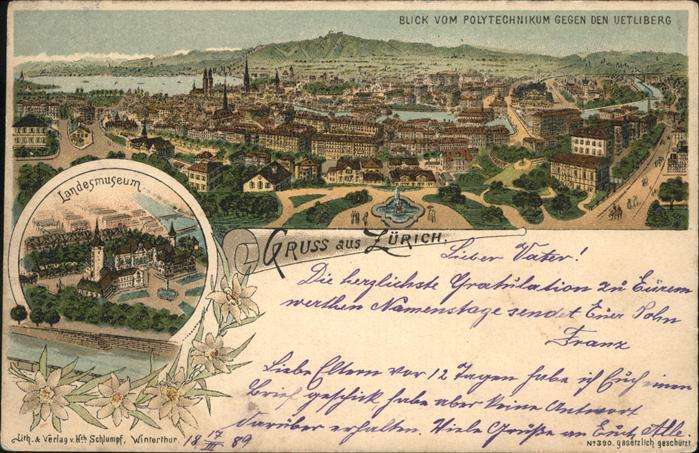 BLICK VOM POLYTECHNIKUM GEGEN DEN UETLIBERG
Landesmuseum.
GRUSS aus ZÜRICH.
Lieber Vater!
Die herzlichste Gratulation zu Eurem
werthen Namenstage sendet Euer Sohn
Franz
Liebe Eltern vor 12 Tagen habe ich Euch einen
Brief geschick habe aber keine Antwort
darüber erhalten. Viele Grüße an Euch Alle.
Lith. & Verlag v. Hch Schlumpf, Winterthur.
18 17/III 89
No 390. gesetzlich geschützt